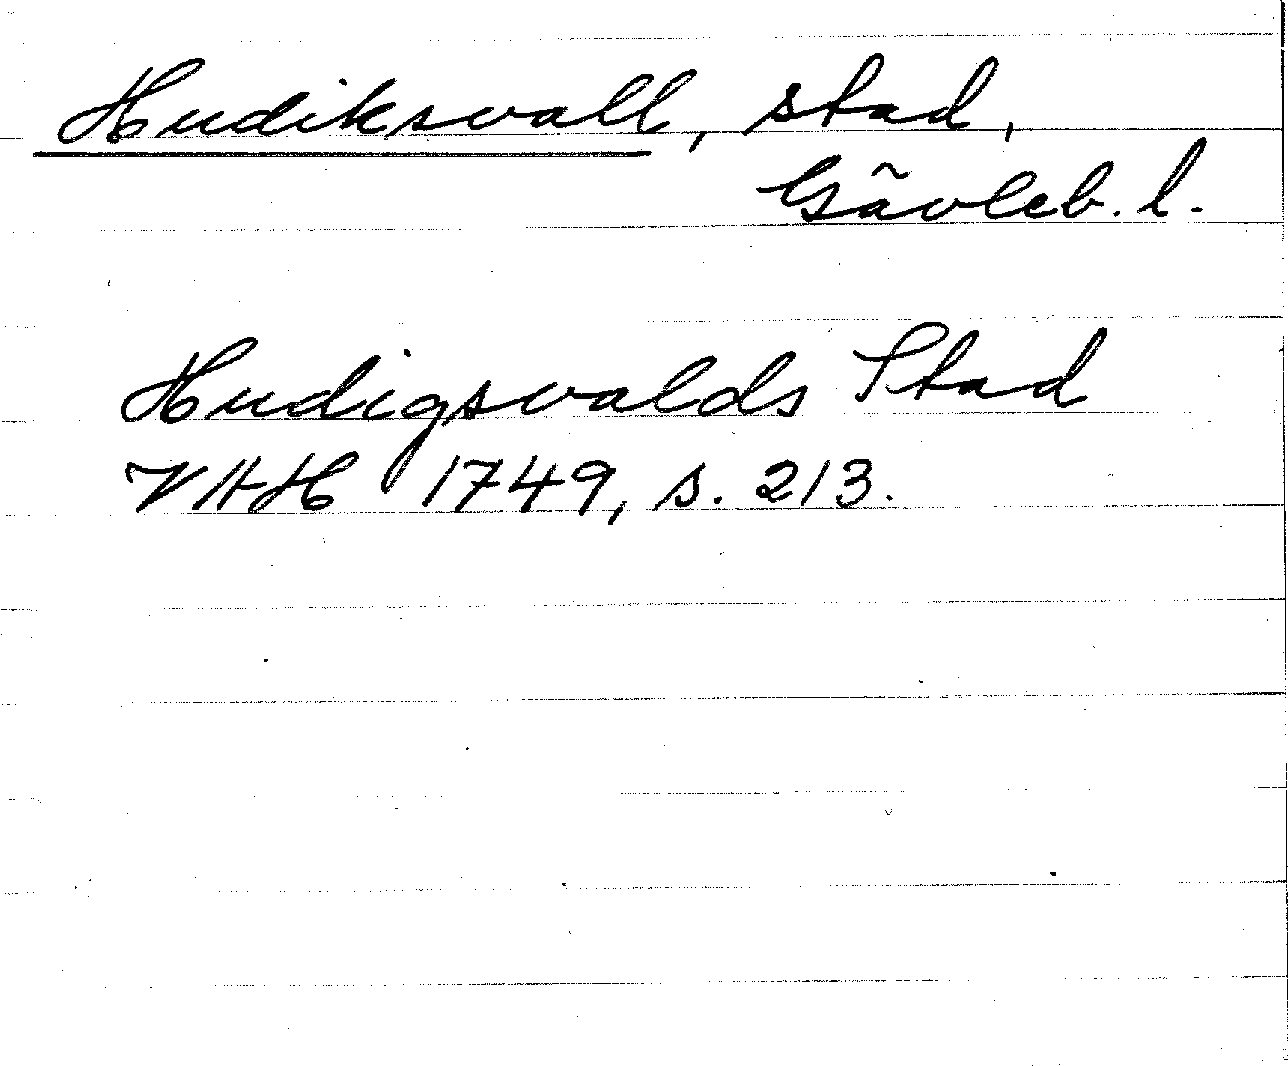 Hudiksvall, stad,
Gävleb. l.
Hudigsvalds Stad
VHH 1749, s. 213.